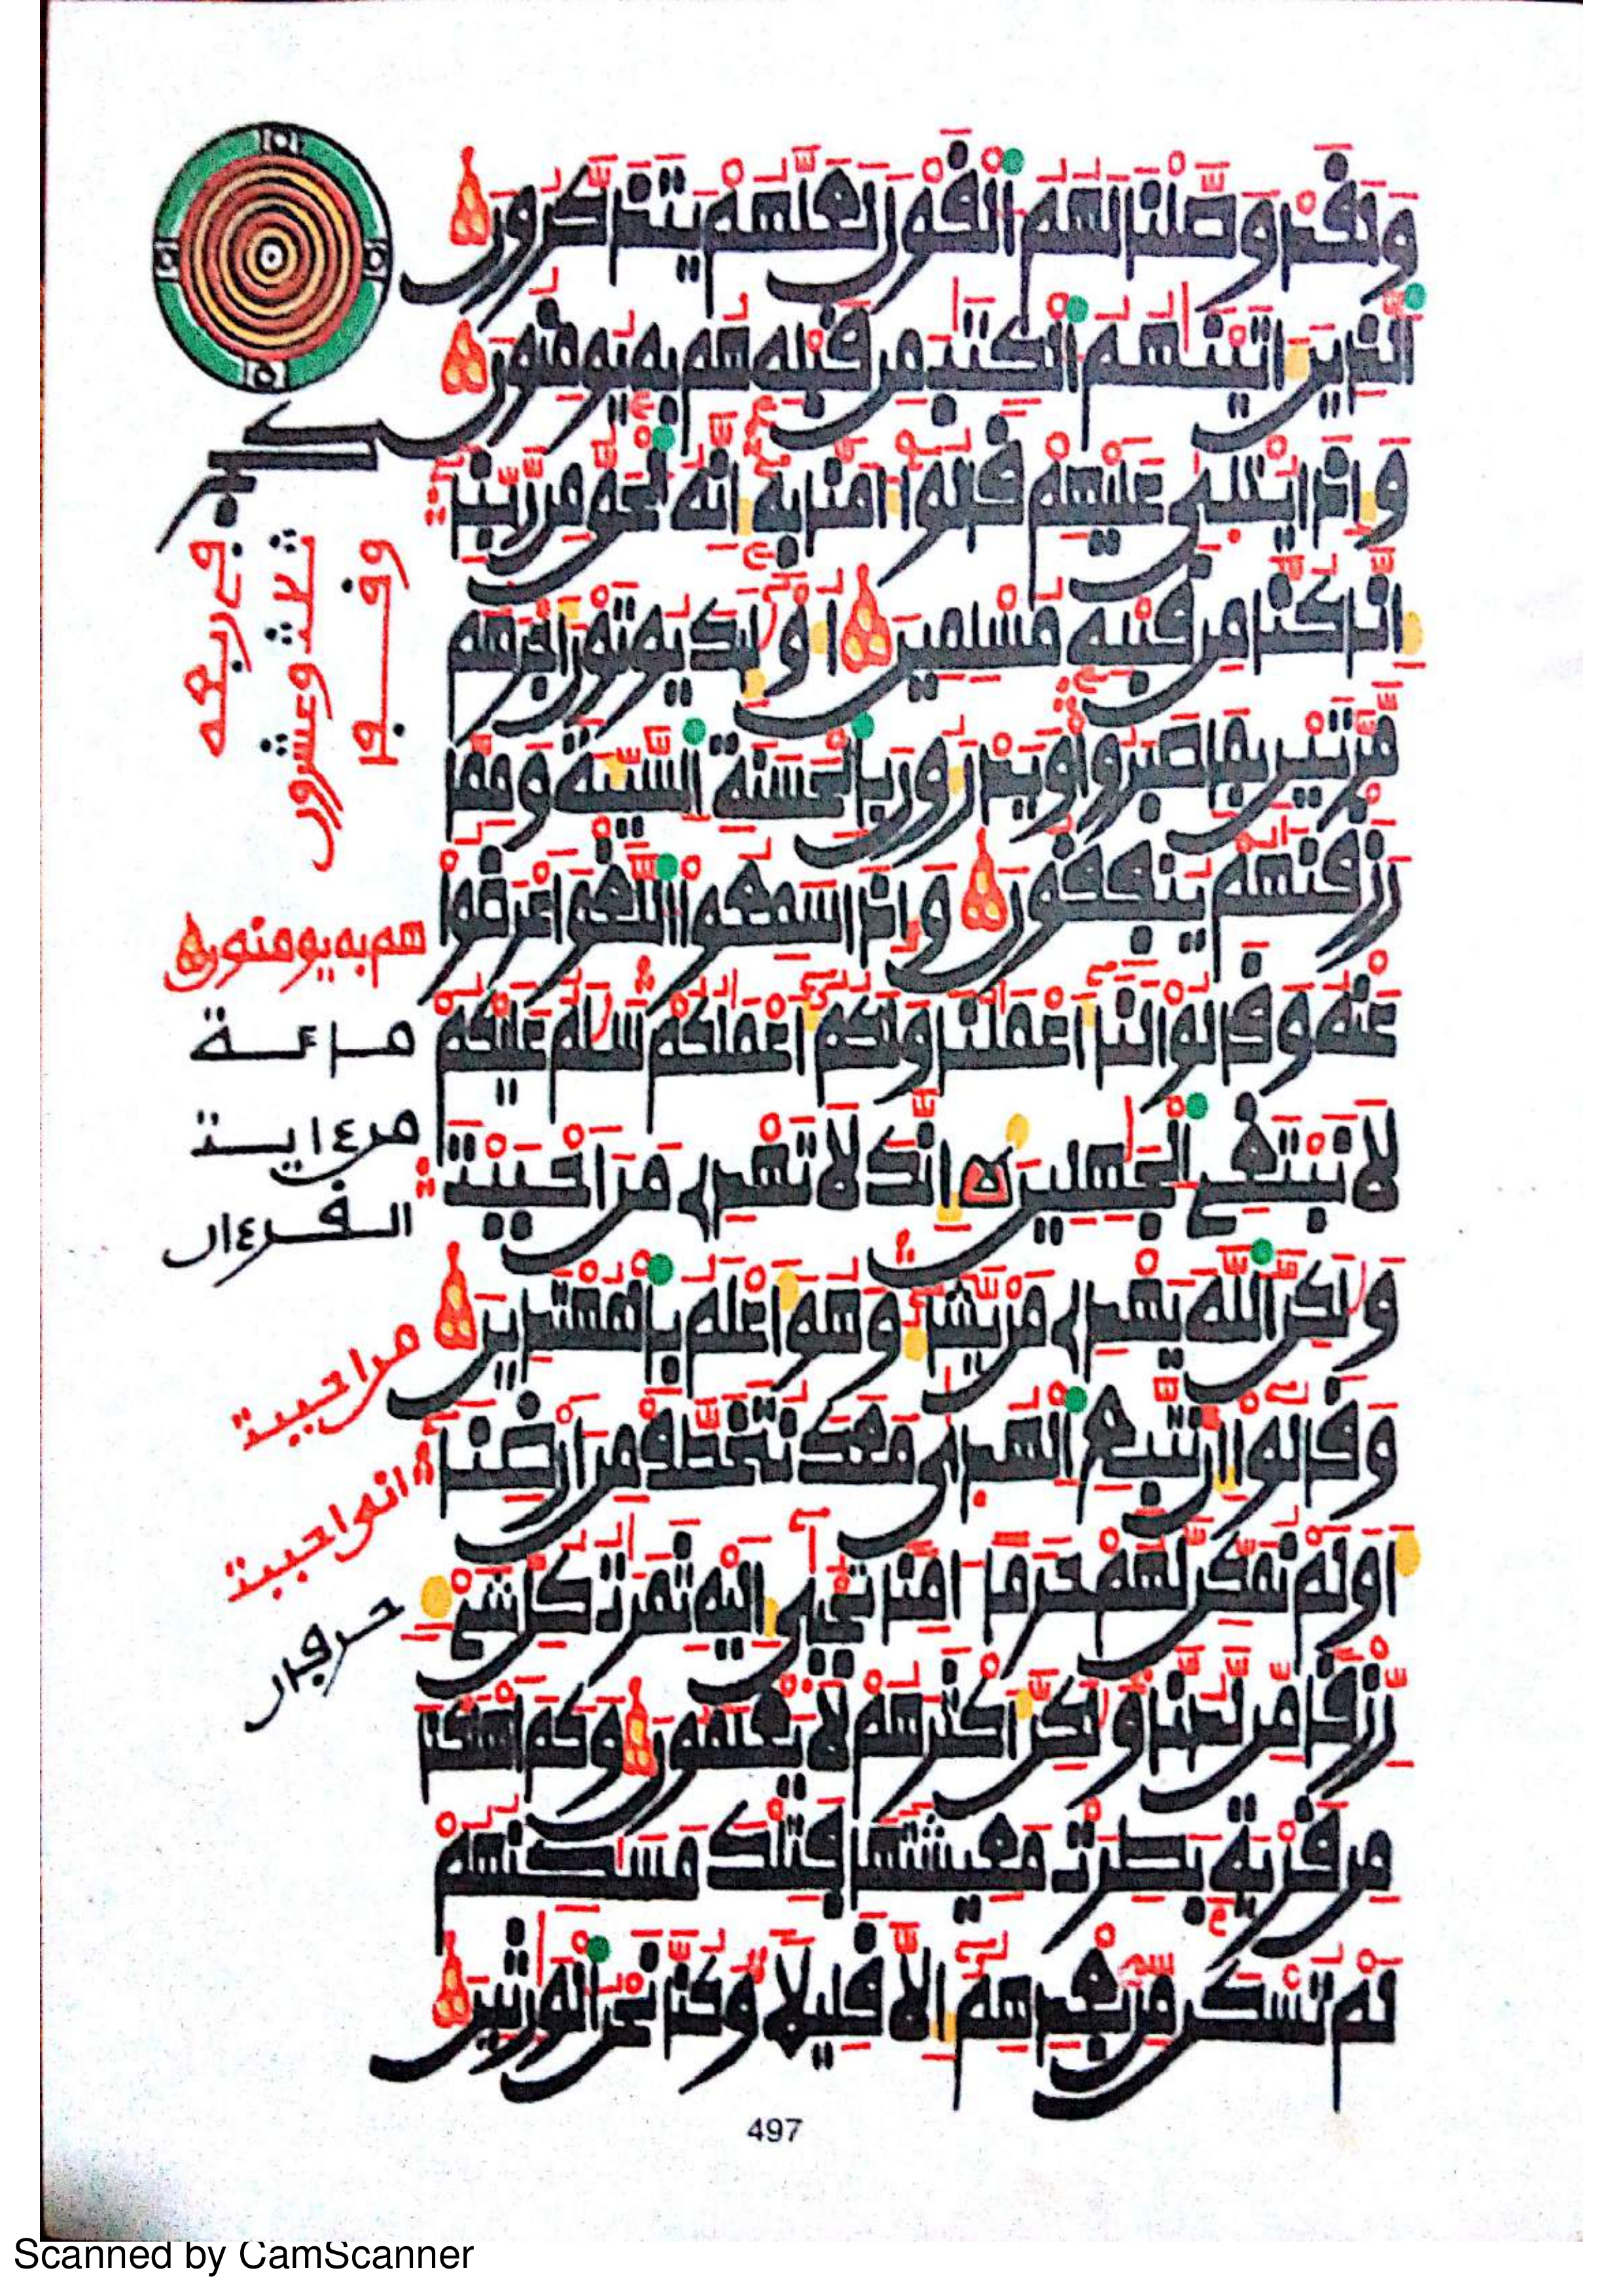 وَلَقَدْ وَصَّلْنَا لَهُمُ اُ۬لْقَوْلَ لَعَلَّهُمْ يَتَذَكَّرُونَ
اَ۬لذِينَ ءَاتَيْنَٰهُمُ اُ۬لْكِتَٰبَ مِن قَبْلِهِۦ هُم بِهِۦ يُومِنُونَ
وَإِذَا يُتْلَىٰ عَلَيْهِمْ قَالُوٓاْ ءَامَنَّا بِهِۦٓ إِنَّهُ اُ۬لْحَقُّ مِن رَّبِّنَآ
إِنَّا كُنَّا مِن قَبْلِهِۦ مُسْلِمِينَ أُوْلَٰٓئِكَ يُوتَوْنَ أَجْرَهُم
مَّرَّتَيْنِ بِمَا صَبَرُواْ وَيَدْرَءُونَ بِالْحَسَنَةِ اِ۬لسَّيِّئَةَ وَمِمَّا
رَزَقْنَٰهُمْ يُنفِقُونَ وَإِذَا سَمِعُواْ اُ۬للَّغْوَ أَعْرَضُواْ
عَنْهُ وَقَالُواْ لَنَآ أَعْمَٰلُنَا وَلَكُمُۥٓ أَعْمَٰلُكُمْ سَلَٰمٌ عَلَيْكُمْ
لَا نَبْتَغِے اِ۬لْجَٰهِلِينَ إِنَّكَ لَا تَهْدِے مَنَ اَحْبَبْتَ
وَلَٰكِنَّ اَ۬للَّهَ يَهْدِے مَنْ يَّشَآءُ وَهُوَ أَعْلَمُ بِالْمُهْتَدِينَ
وَقَالُوٓاْ إِن نَّتَّبِعِ اِ۬لْهُدَىٰ مَعَكَ نُتَخَطَّفْ مِنَ اَرْضِنَآ
أَوَلَمْ نُمَكِّن لَّهُمْ حَرَماً ءَامِناً تُجْبَىٰٓ إِلَيْهِ ثَمَرَٰتُ كُلِّ شَےْءٖ
رِّزْقاً مِّن لَّدُنَّا وَلَٰكِنَّ أَكْثَرَهُمْ لَا يَعْلَمُونَ وَكَمَ اَهْلَكْنَا
مِن قَرْيَةِۢ بَطِرَتْ مَعِيشَتَهَا فَتِلْكَ مَسَٰكِنُهُمْ
لَمْ تُسْكَن مِّنۢ بَعْدِهِمُۥٓ إِلَّا قَلِيلاً وَكُنَّا نَحْنُ اُ۬لْوَٰرِثِينَ
وقبـوا
ثلاث وعشرون
في ربعه
هم به يومنون
ماءـة
من ءايـة
القرءان
من احببت
انه احببت
حرفان
497
Scanned by CamScanner